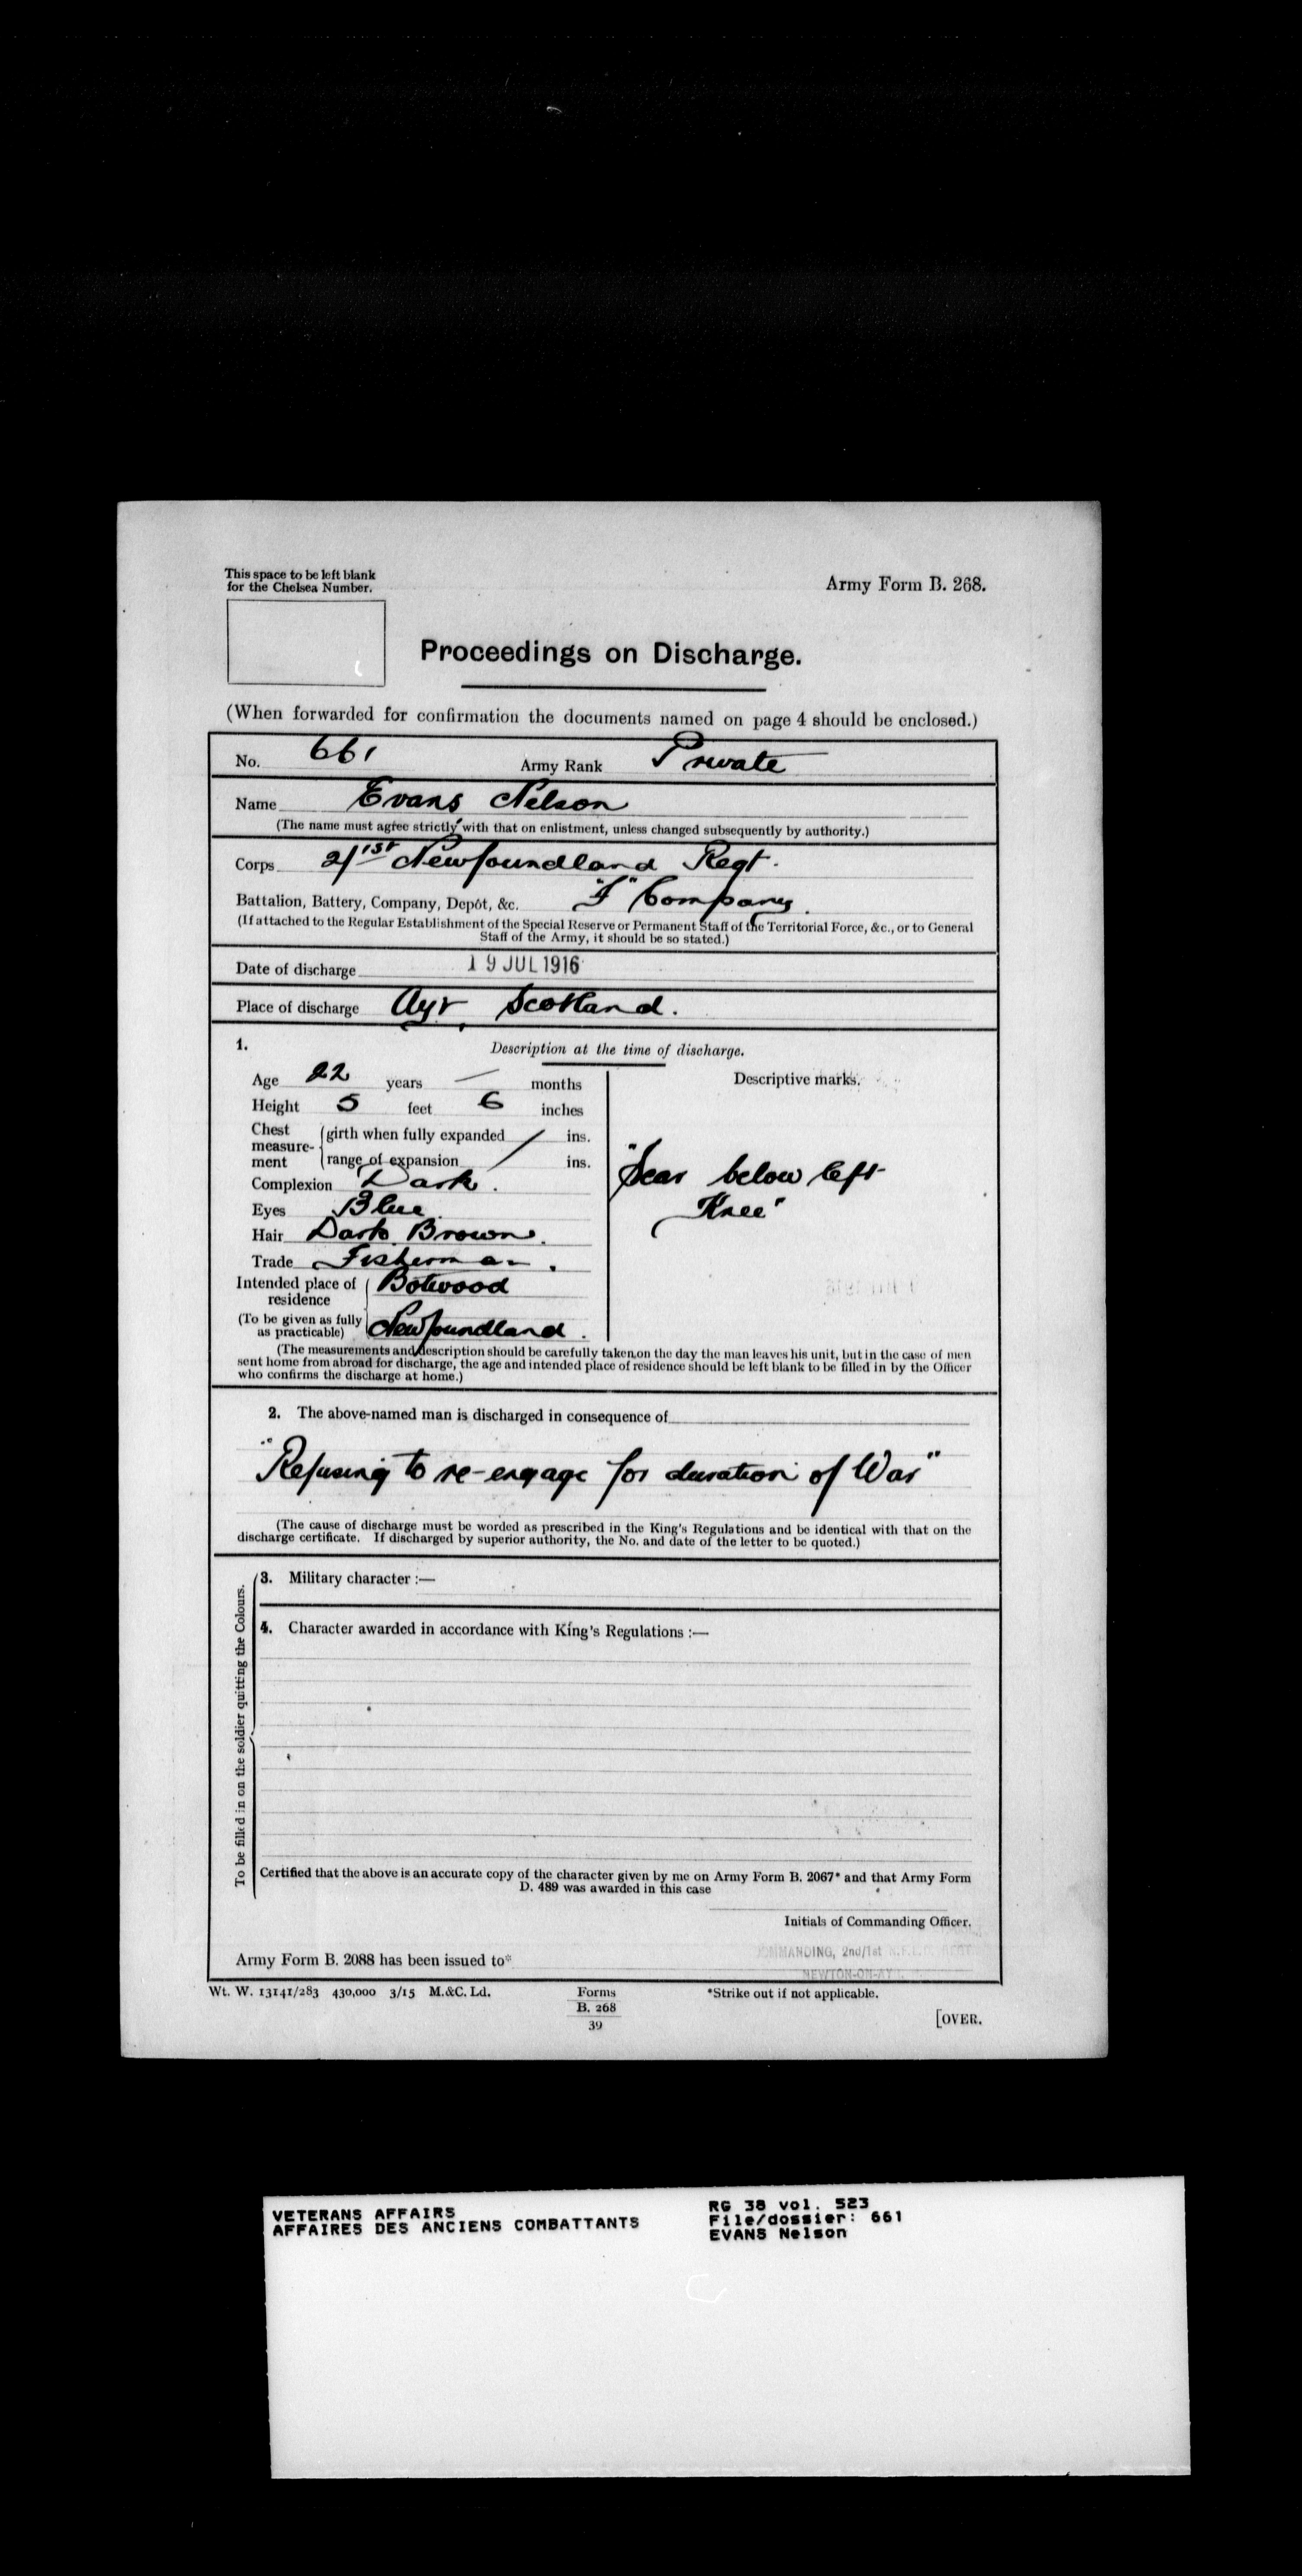 This space to be left blank
for the Chelsea Number.
Army Form B. 268.
Proceedings on Discharge.
(When forwarded for confirmation the documents named on page 4 should be enclosed.)
No. 661 Army Rank Private
Name Evans Nelson
(The name must agree strictly with that on enlistment, unless changed subsequently by authority.)
Corps 2/1st Newfoundland Regt.
Battalion, Battery, Company, Depôt, &c. "F" Company.
(If attached to the Regular Establishment of the Special Reserve or Permanent Staff of the Territorial Force, &c., or to General
Staff of the Army, it should be so stated.)
Date of discharge 19 JUL 1916
Place of discharge Ayr, Scotland.
1. Description at the time of discharge.
Age 22 years — months
Height 5 feet 6 inches
Chest measurement
girth when fully expanded / ins.
range of expansion / ins.
Complexion Dark.
Eyes Blue.
Hair Dark Brown.
Trade Fisherman.
Intended place of residence Botwood
(To be given as fully as practicable) Newfoundland.
Descriptive marks.
"Scar below left
Knee"
(The measurements and description should be carefully taken on the day the man leaves his unit, but in the case of men
sent home from abroad for discharge, the age and intended place of residence should be left blank to be filled in by the Officer
who confirms the discharge at home.)
2. The above-named man is discharged in consequence of
"Refusing to re-engage for duration of War"
(The cause of discharge must be worded as prescribed in the King's Regulations and be identical with that on the
discharge certificate. If discharged by superior authority, the No. and date of the letter to be quoted.)
To be filled in on the soldier quitting the Colours.
3. Military character :—
4. Character awarded in accordance with King's Regulations :—
Certified that the above is an accurate copy of the character given by me on Army Form B. 2067* and that Army Form
D. 489 was awarded in this case
Initials of Commanding Officer.
COMMANDING, 2nd/1st
NEWTON-ON-AYR
Army Form B. 2088 has been issued to*
Wt. W. 13141/283 430,000 3/15 M.&C. Ld.
Forms
B. 268
39
*Strike out if not applicable.
[OVER.
VETERANS AFFAIRS
AFFAIRES DES ANCIENS COMBATTANTS
RG 38 vol. 523
File/dossier: 661
EVANS Nelson